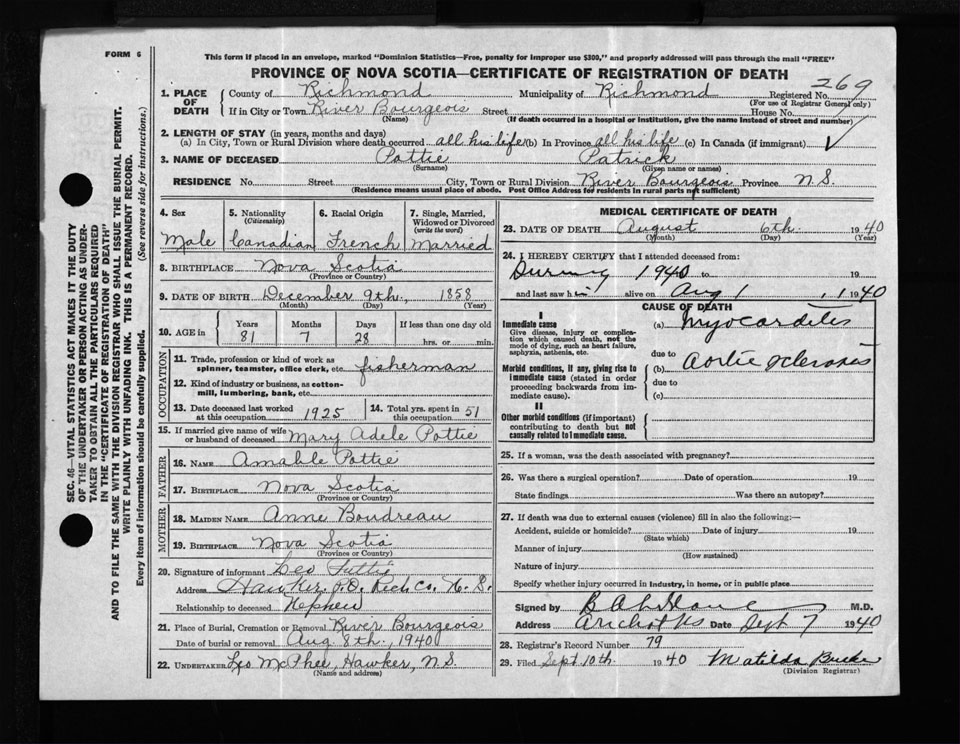 FORM 6
This form if placed in an envelope, marked "Dominion Statistics—Free, penalty for improper use $300," and properly addressed will pass through the mail "FREE"
PROVINCE OF NOVA SCOTIA—CERTIFICATE OF REGISTRATION OF DEATH
269
1. PLACE OF DEATH County of Richmond Municipality of Richmond Registered No.
(For use of Registrar General only)
If in City or Town River Bourgeois Street House No.
(Name) (If death occurred in a hospital or institution, give the name instead of street and number)
2. LENGTH OF STAY (in years, months and days)
(a) In City, Town or Rural Division where death occurred all his life (b) In Province all his life (c) In Canada (if immigrant)
3. NAME OF DECEASED Pottie Patrick
(Surname) (Given name or names)
RESIDENCE No. Street City, Town or Rural Division River Bourgeois Province N.S.
(Residence means usual place of abode. Post Office Address for residents in rural parts not sufficient)
4. Sex 5. Nationality (Citizenship) 6. Racial Origin 7. Single, Married, Widowed or Divorced (write the word)
Male Canadian French Married
8. BIRTHPLACE Nova Scotia
(Province or Country)
9. DATE OF BIRTH December 9th., 1858
(Month) (Day) (Year)
10. AGE in Years Months Days If less than one day old
81 7 28 hrs. or min.
OCCUPATION
11. Trade, profession or kind of work as spinner, teamster, office clerk, etc. fisherman
12. Kind of industry or business, as cotton-mill, lumbering, bank, etc.
13. Date deceased last worked at this occupation 1925 14. Total yrs. spent in this occupation 51
15. If married give name of wife or husband of deceased Mary Adele Pottie
FATHER
16. NAME Amable Pottie
17. BIRTHPLACE Nova Scotia
(Province or Country)
MOTHER
18. MAIDEN NAME Anne Boudreau
19. BIRTHPLACE Nova Scotia
(Province or Country)
20. Signature of informant Leo Pattie
Address Hawker P.O. Rich Co. N.S.
Relationship to deceased Nephew
21. Place of Burial, Cremation or Removal River Bourgeois
Date of burial or removal Aug. 8th., 1940
22. UNDERTAKER Leo McPhee, Hawker, N.S.
(Name and address)
MEDICAL CERTIFICATE OF DEATH
23. DATE OF DEATH August 6th. 1940
(Month) (Day) (Year)
24. I HEREBY CERTIFY that I attended deceased from:
During 1940 to 19
and last saw him alive on Aug 1, 1940
CAUSE OF DEATH
I
Immediate cause (a) Myocarditis
Give disease, injury or complication which caused death, not the mode of dying, such as heart failure, asphyxia, asthenia, etc.
due to
Morbid conditions, if any, giving rise to immediate cause (stated in order proceeding backwards from immediate cause). (b) Aortic sclerosis
due to
(c)
II
Other morbid conditions (if important) contributing to death but not causally related to immediate cause.
25. If a woman, was the death associated with pregnancy?
26. Was there a surgical operation? Date of operation 19
State findings Was there an autopsy?
27. If death was due to external causes (violence) fill in also the following:—
Accident, suicide or homicide? Date of injury 19
(State which)
Manner of injury
(How sustained)
Nature of injury
Specify whether injury occurred in industry, in home, or in public place
Signed by M.D.
Address Arichat NS Date Sept 7 1940
28. Registrar's Record Number 79
29. Filed Sept 10th. 1940 Matilda
(Division Registrar)
SEC. 46—VITAL STATISTICS ACT MAKES IT THE DUTY
OF THE UNDERTAKER OR PERSON ACTING AS UNDER-
TAKER TO OBTAIN ALL THE PARTICULARS REQUIRED
IN THE "CERTIFICATE OF REGISTRATION OF DEATH"
AND TO FILE THE SAME WITH THE DIVISION REGISTRAR WHO SHALL ISSUE THE BURIAL PERMIT.
WRITE PLAINLY WITH UNFADING INK. THIS IS A PERMANENT RECORD.
Every item of information should be carefully supplied. (See reverse side for instructions.)